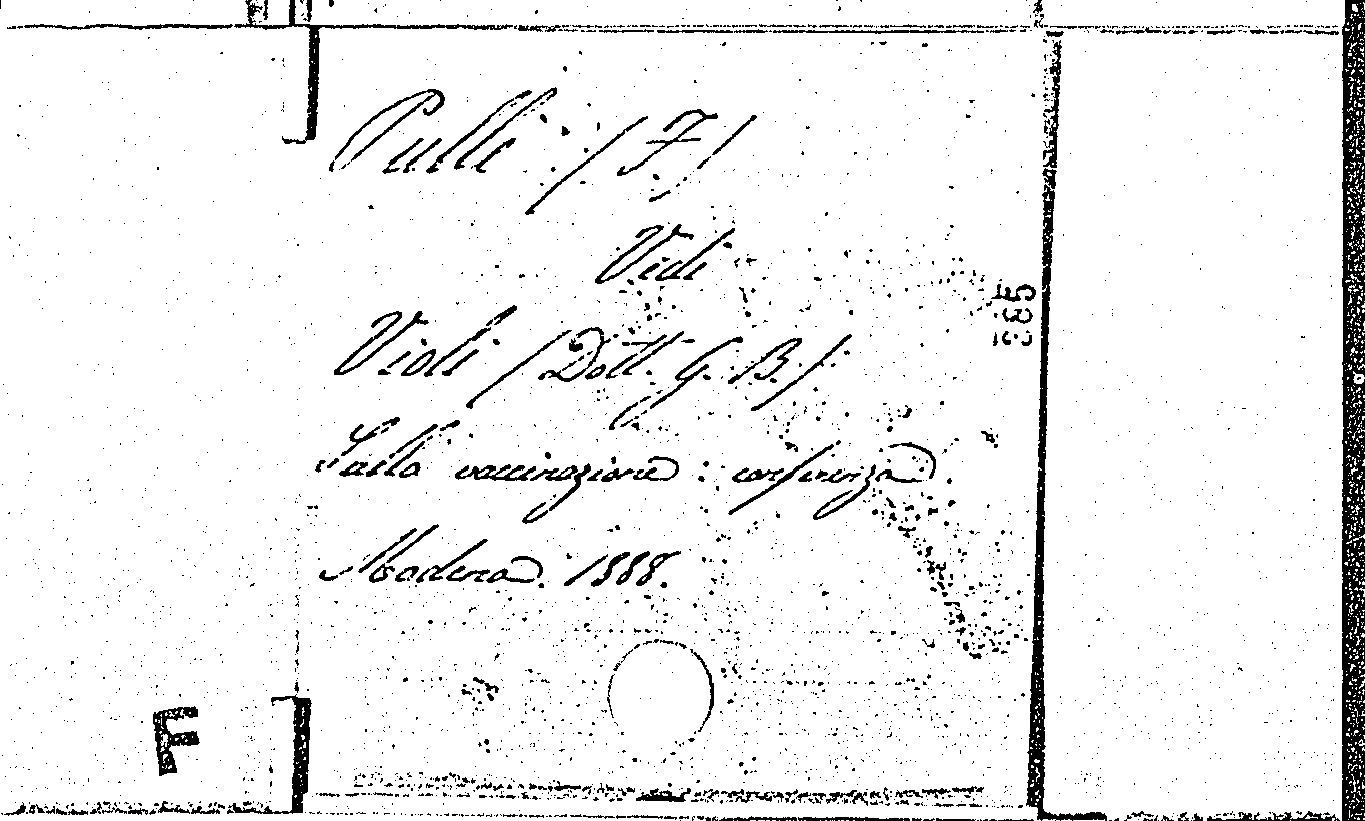 Pulle (F.)
Vedi
Violi (Dott. G. B.)
Sulla vaccinazione: conferenza
Modena. 1888.
335
F